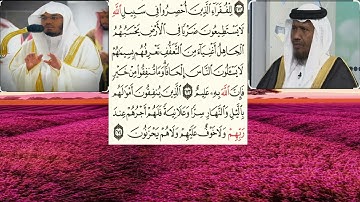 لِلْفُقَرَآءِ الَّذِينَ أُحْصِرُوا۟ فِى سَبِيلِ اللَّهِ
لَا يَسْتَطِيعُونَ ضَرْبًا فِى الْأَرْضِ يَحْسَبُهُمُ
الْجَاهِلُ أَغْنِيَآءَ مِنَ التَّعَفُّفِ تَعْرِفُهُم بِسِيمَٰهُمْ
لَا يَسْـَٔلُونَ النَّاسَ إِلْحَافًا وَمَا تُنفِقُوا۟ مِنْ خَيْرٍ
فَإِنَّ اللَّهَ بِهِۦ عَلِيمٌ ٢٧٣ الَّذِينَ يُنفِقُونَ أَمْوَٰلَهُم
بِالَّيْلِ وَالنَّهَارِ سِرًّا وَعَلَانِيَةً فَلَهُمْ أَجْرُهُمْ عِندَ
رَبِّهِمْ وَلَا خَوْفٌ عَلَيْهِمْ وَلَا هُمْ يَحْزَنُونَ ٢٧٤